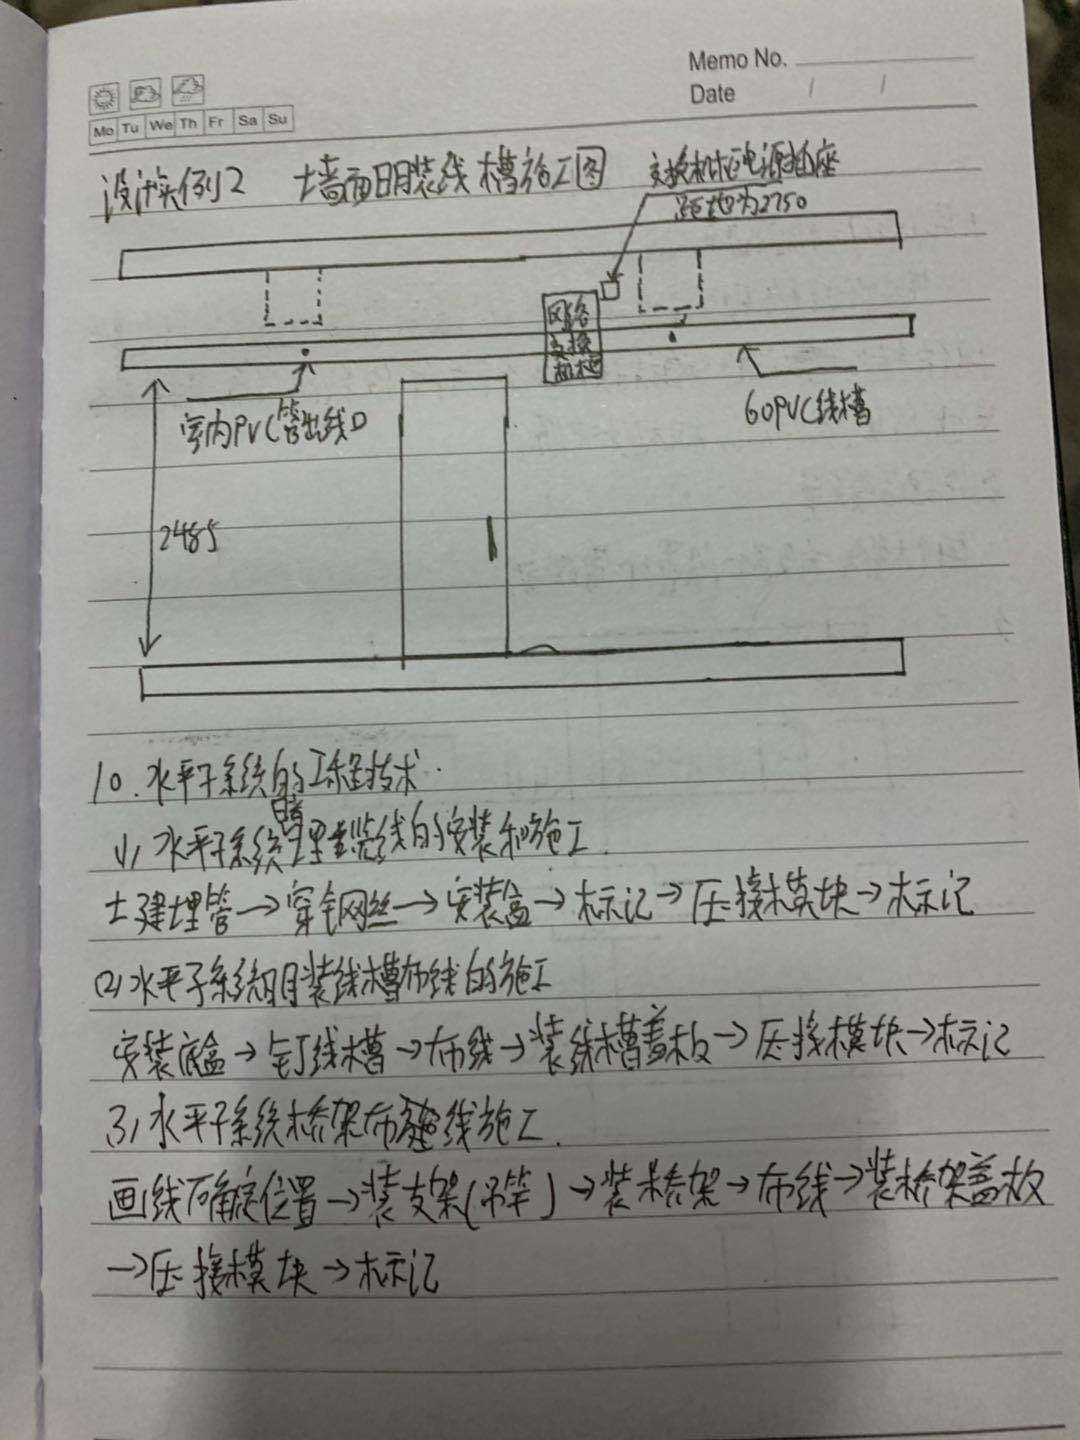 Memo No.
Date / /
Mo Tu We Th Fr Sa Su
设计实例2 墙面明装线槽施工图
交换机柜电源插座
距地为2750
网络
交换
机柜
室内PVC管出线口
60PVC线槽
2485
10.水平子系统的工程技术.
(1)水平子系统暗埋装线的安装和施工.
土建埋管→穿钢丝→安装盒→标记→压接模块→标记
(2)水平子系统明装线槽布线的施工
安装底盒→钉线槽→布线→装线槽盖板→压接模块→标记
3)水平子系统桥架布线施工.
画线确定位置→装支架(吊竿)→装桥架→布线→装桥架盖板
→压接模块→标记